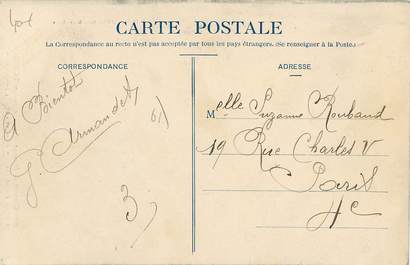 CARTE POSTALE
La Correspondance au recto n'est pas acceptée par tous les pays étrangers. (Se renseigner à la Poste.)
CORRESPONDANCE
ADRESSE
A Bientot
G. Armandet
61)
3)
Melle Suzanne Roubaud
19 Rue Charles V
Paris
4e